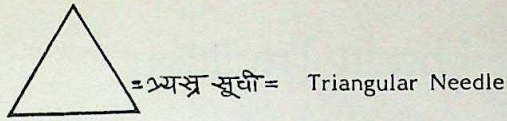 = त्र्यस्र सूची = Triangular Needle